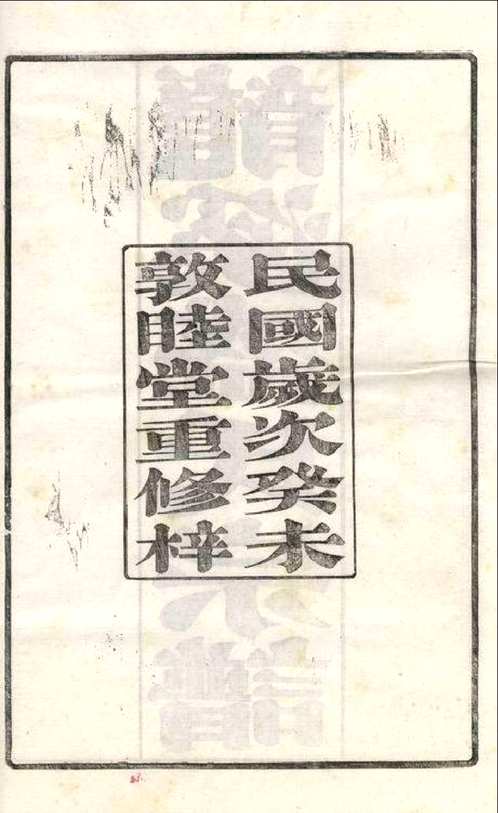 民國歲次癸未
敦睦堂重修梓